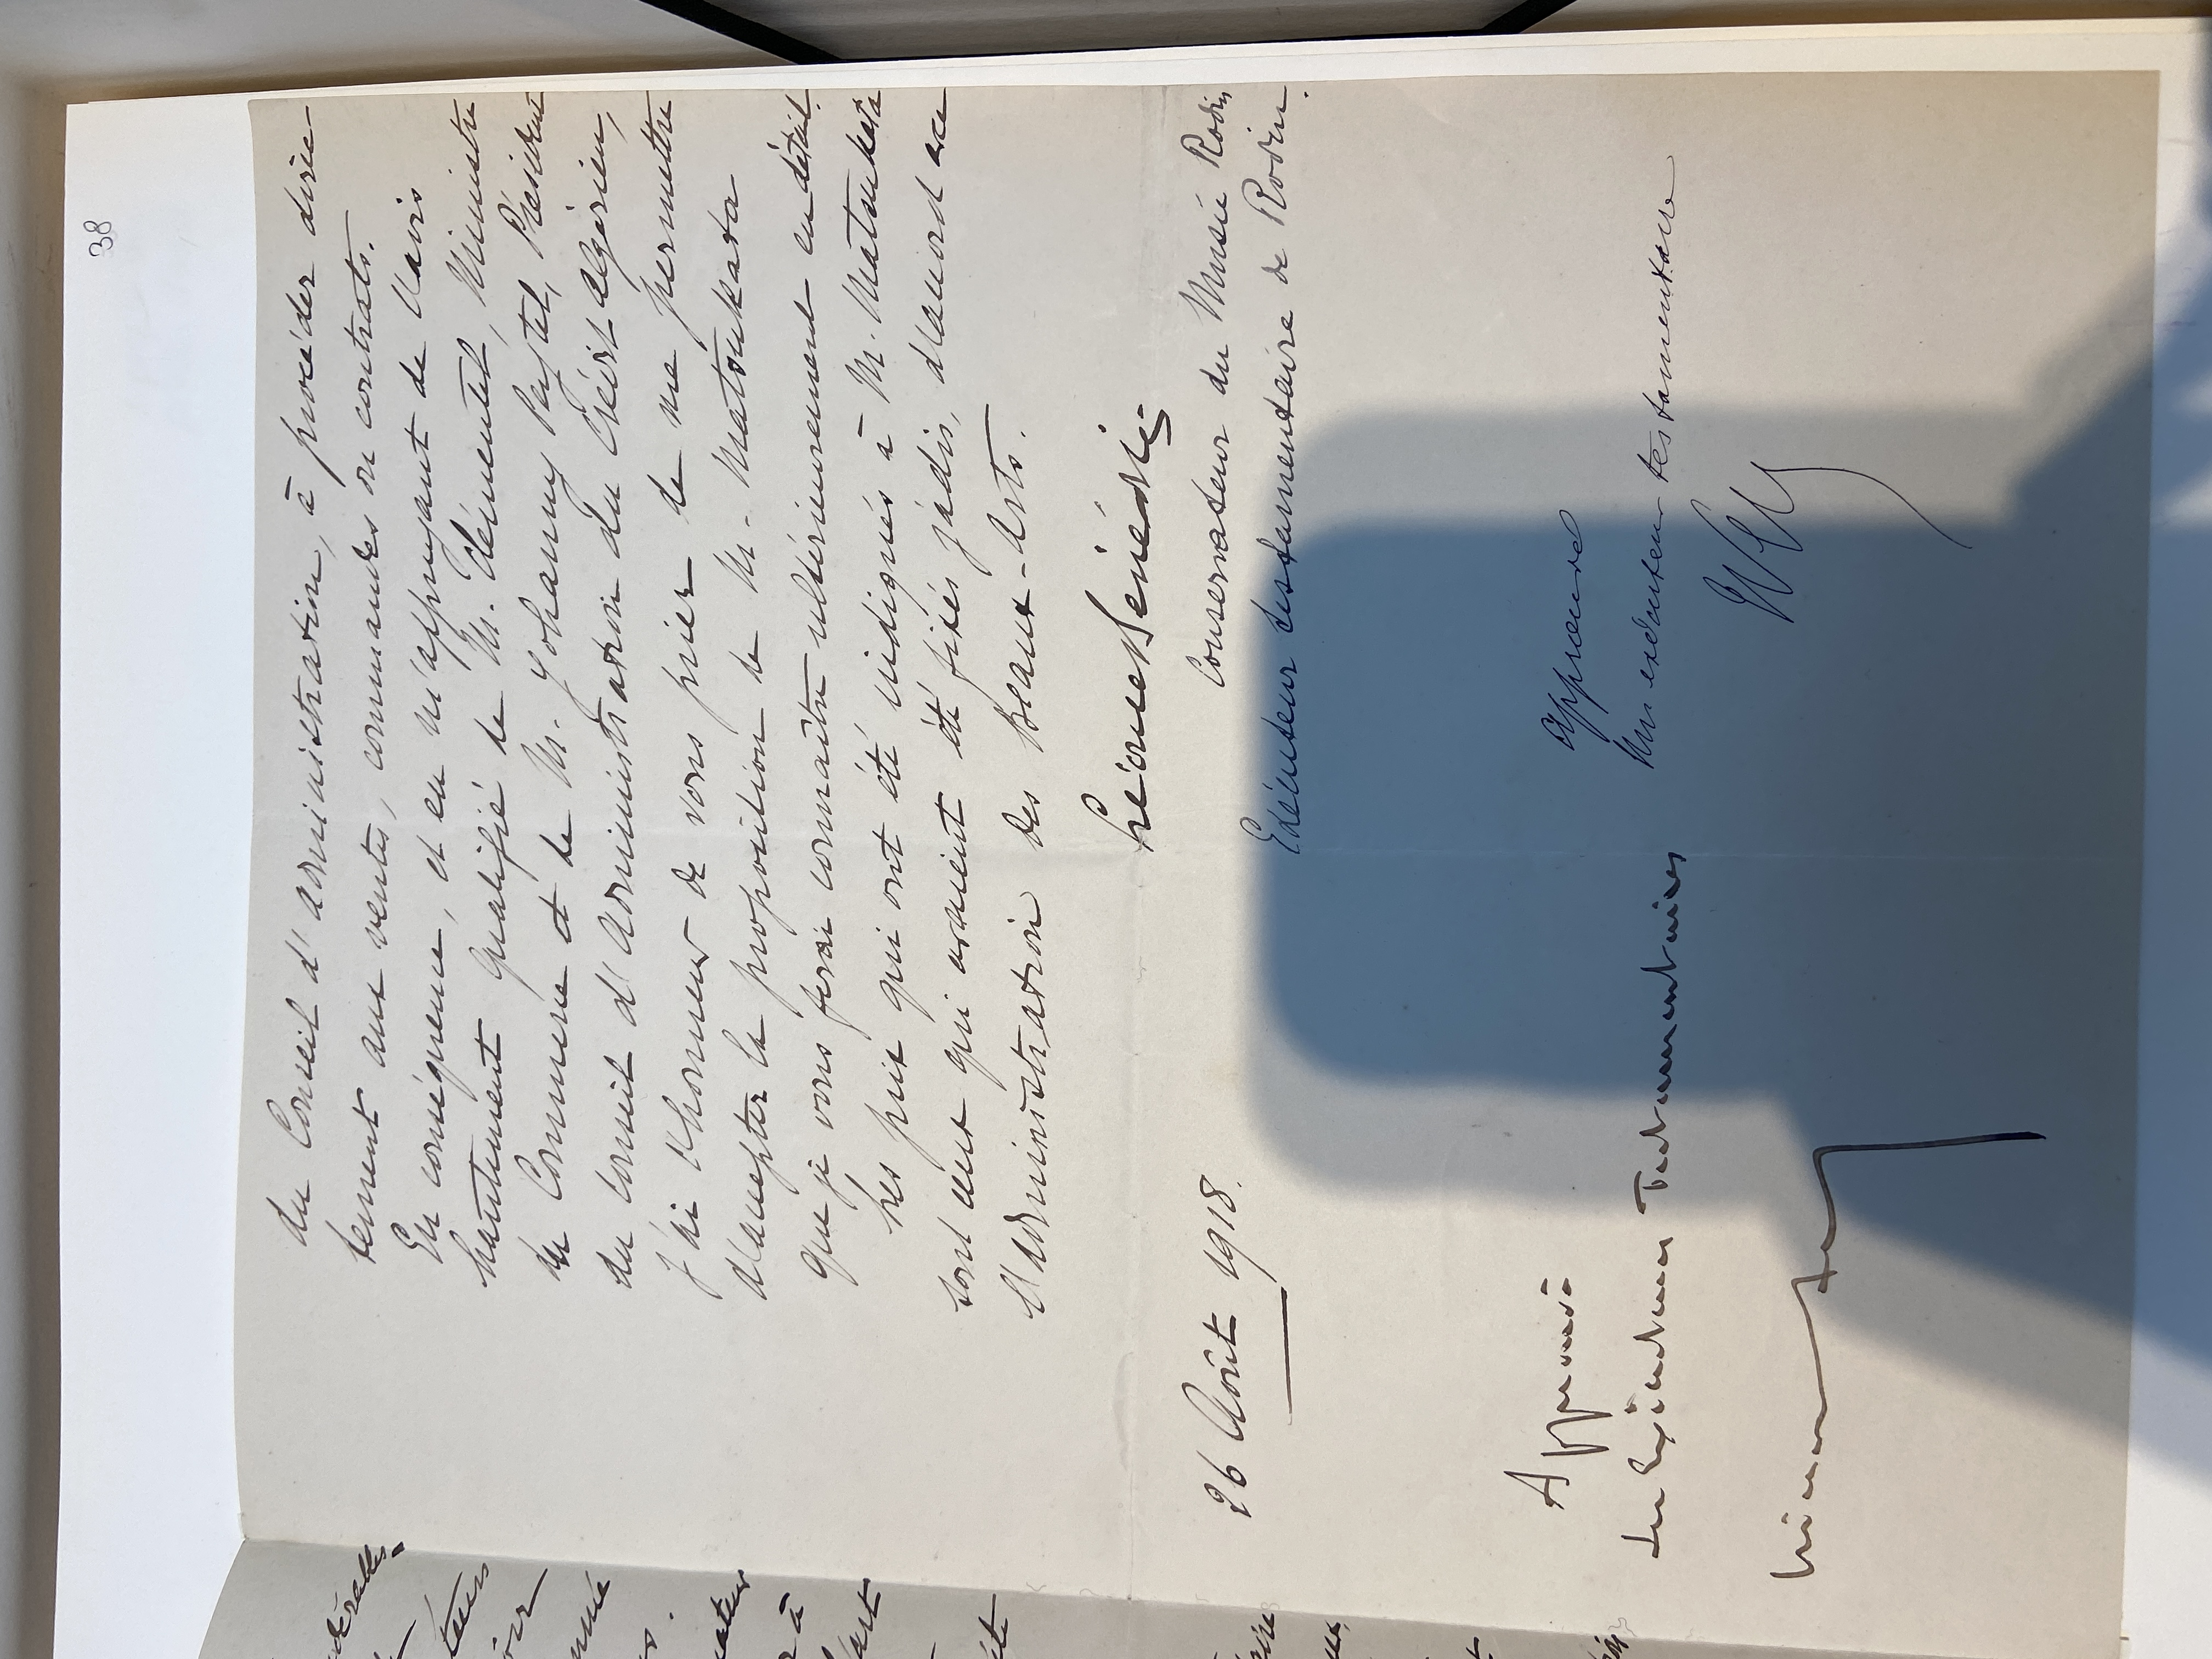 38
du Conseil d'administration, à procéder direc-
tement aux ventes, commandes ou contrats.
En conséquence, et en m'appuyant de l'avis
hautement qualifié de M. Clémentel, Ministre
du Commerce et de M. Johanny Peytel, Président
du Conseil d'Administration du Crédit algérien,
j'ai l'honneur de vous prier de me permettre
d'accepter la proposition de M. Matsukata
que je vous ferai connaître ultérieurement en détail.
Les prix qui ont été indiqués à M. Matsukata
sont ceux qui avaient été fixés jadis, d'accord avec
l'administration des Beaux-Arts.
Léonce Bénédite
Conservateur du Musée Rodin
Exécuteur testamentaire de Rodin.
26 Août 1918.
Approuvé
Un exécuteur testamentaire
Approuvé
Un Exécuteur Testamentaire